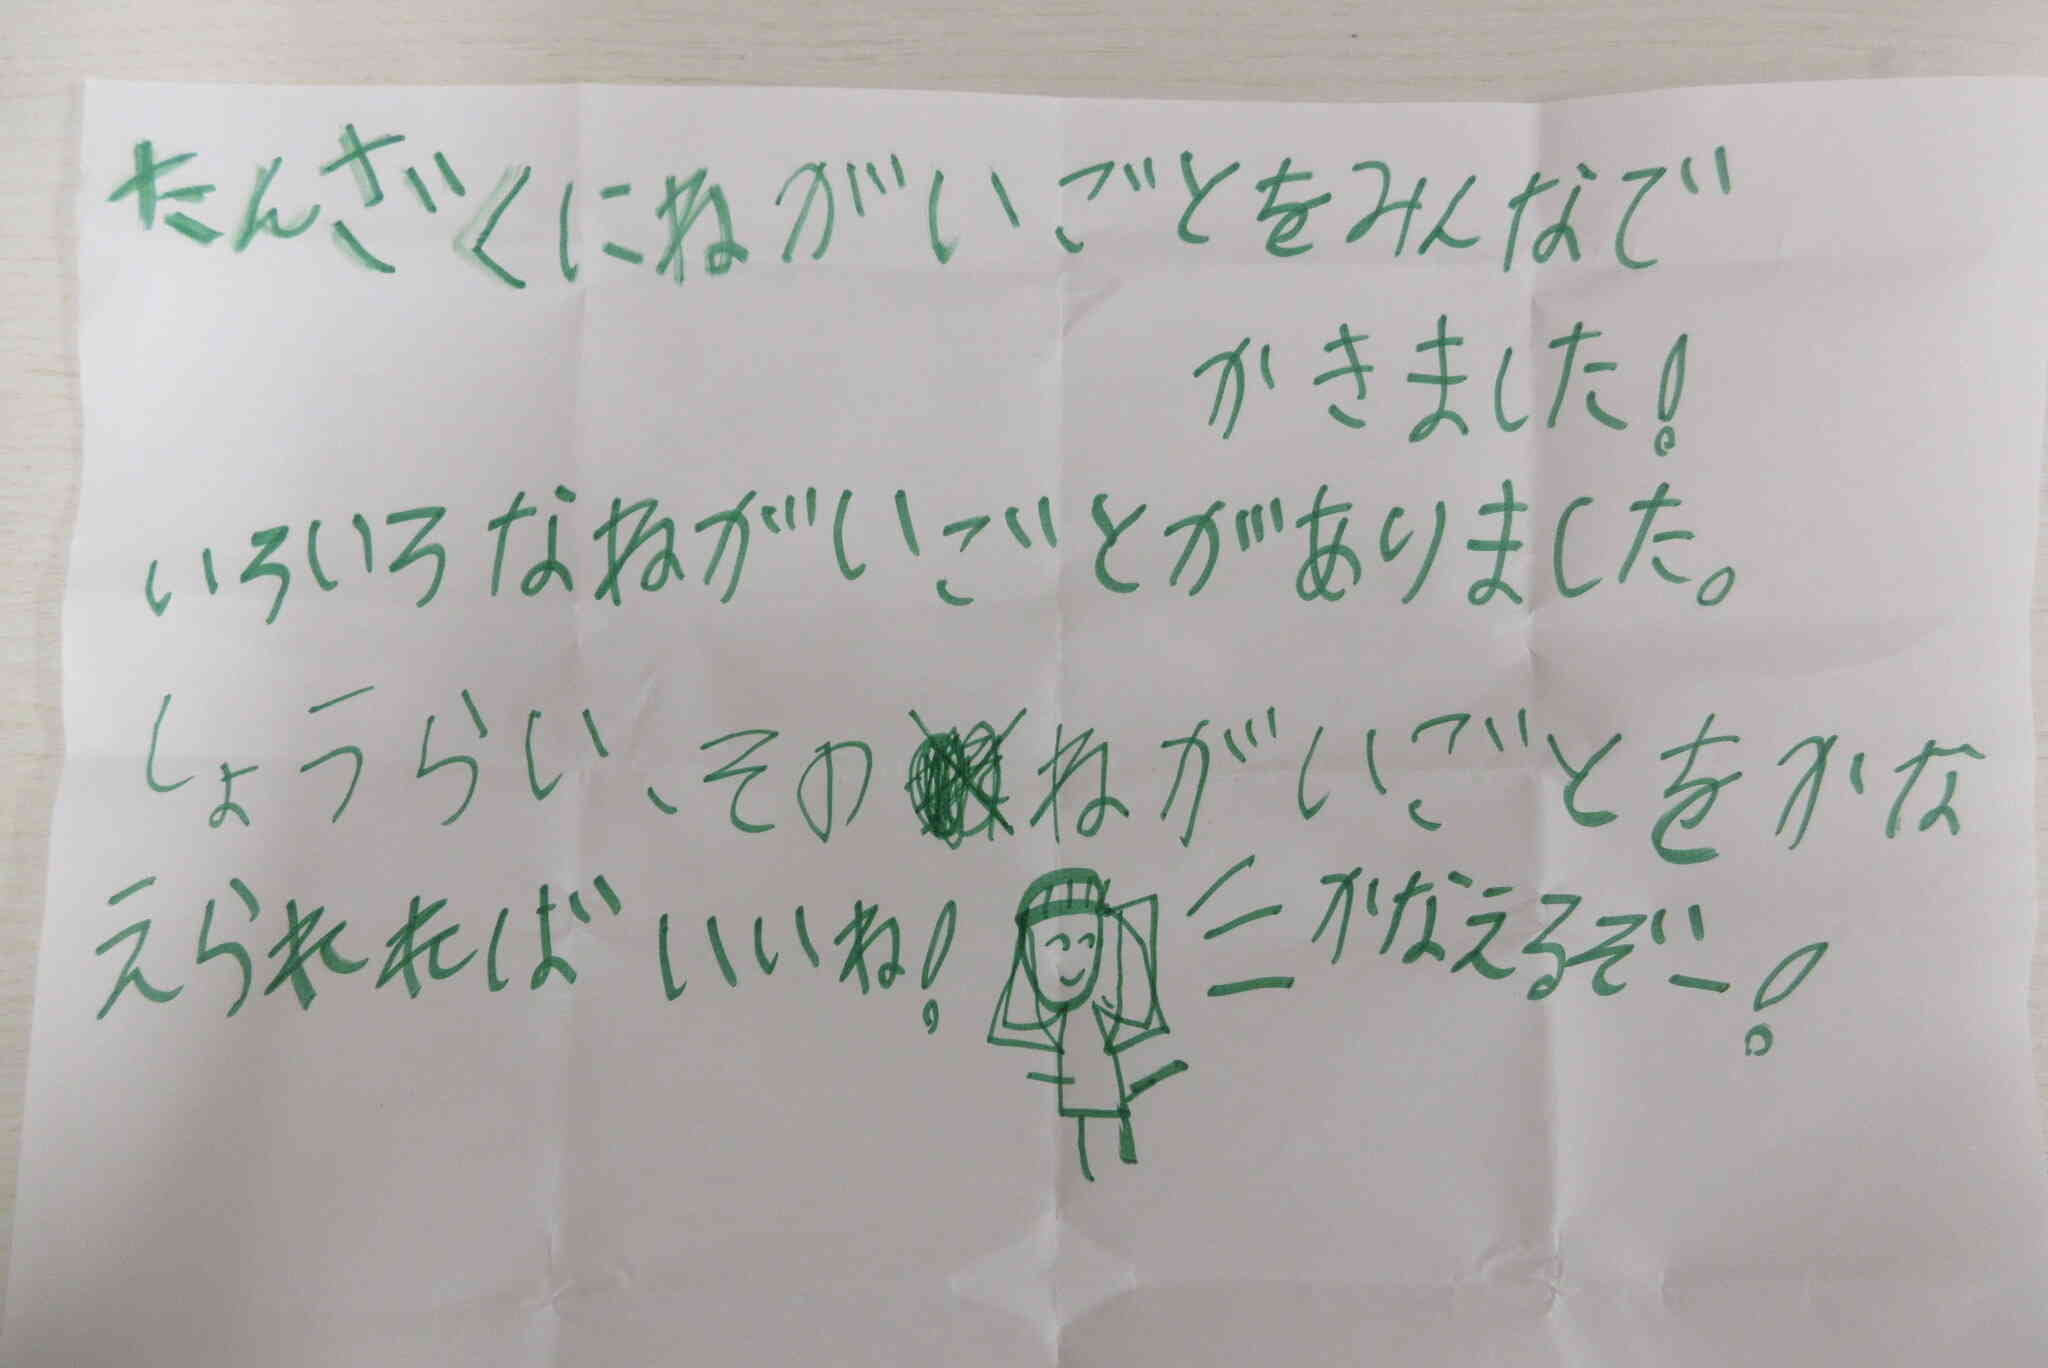 たんざくにねがいごとをみんなで
かきました!
いろいろなねがいごとがありました。
しょうらい、そのねがいごとをかな
えられればいいね!
かなえるぞー!